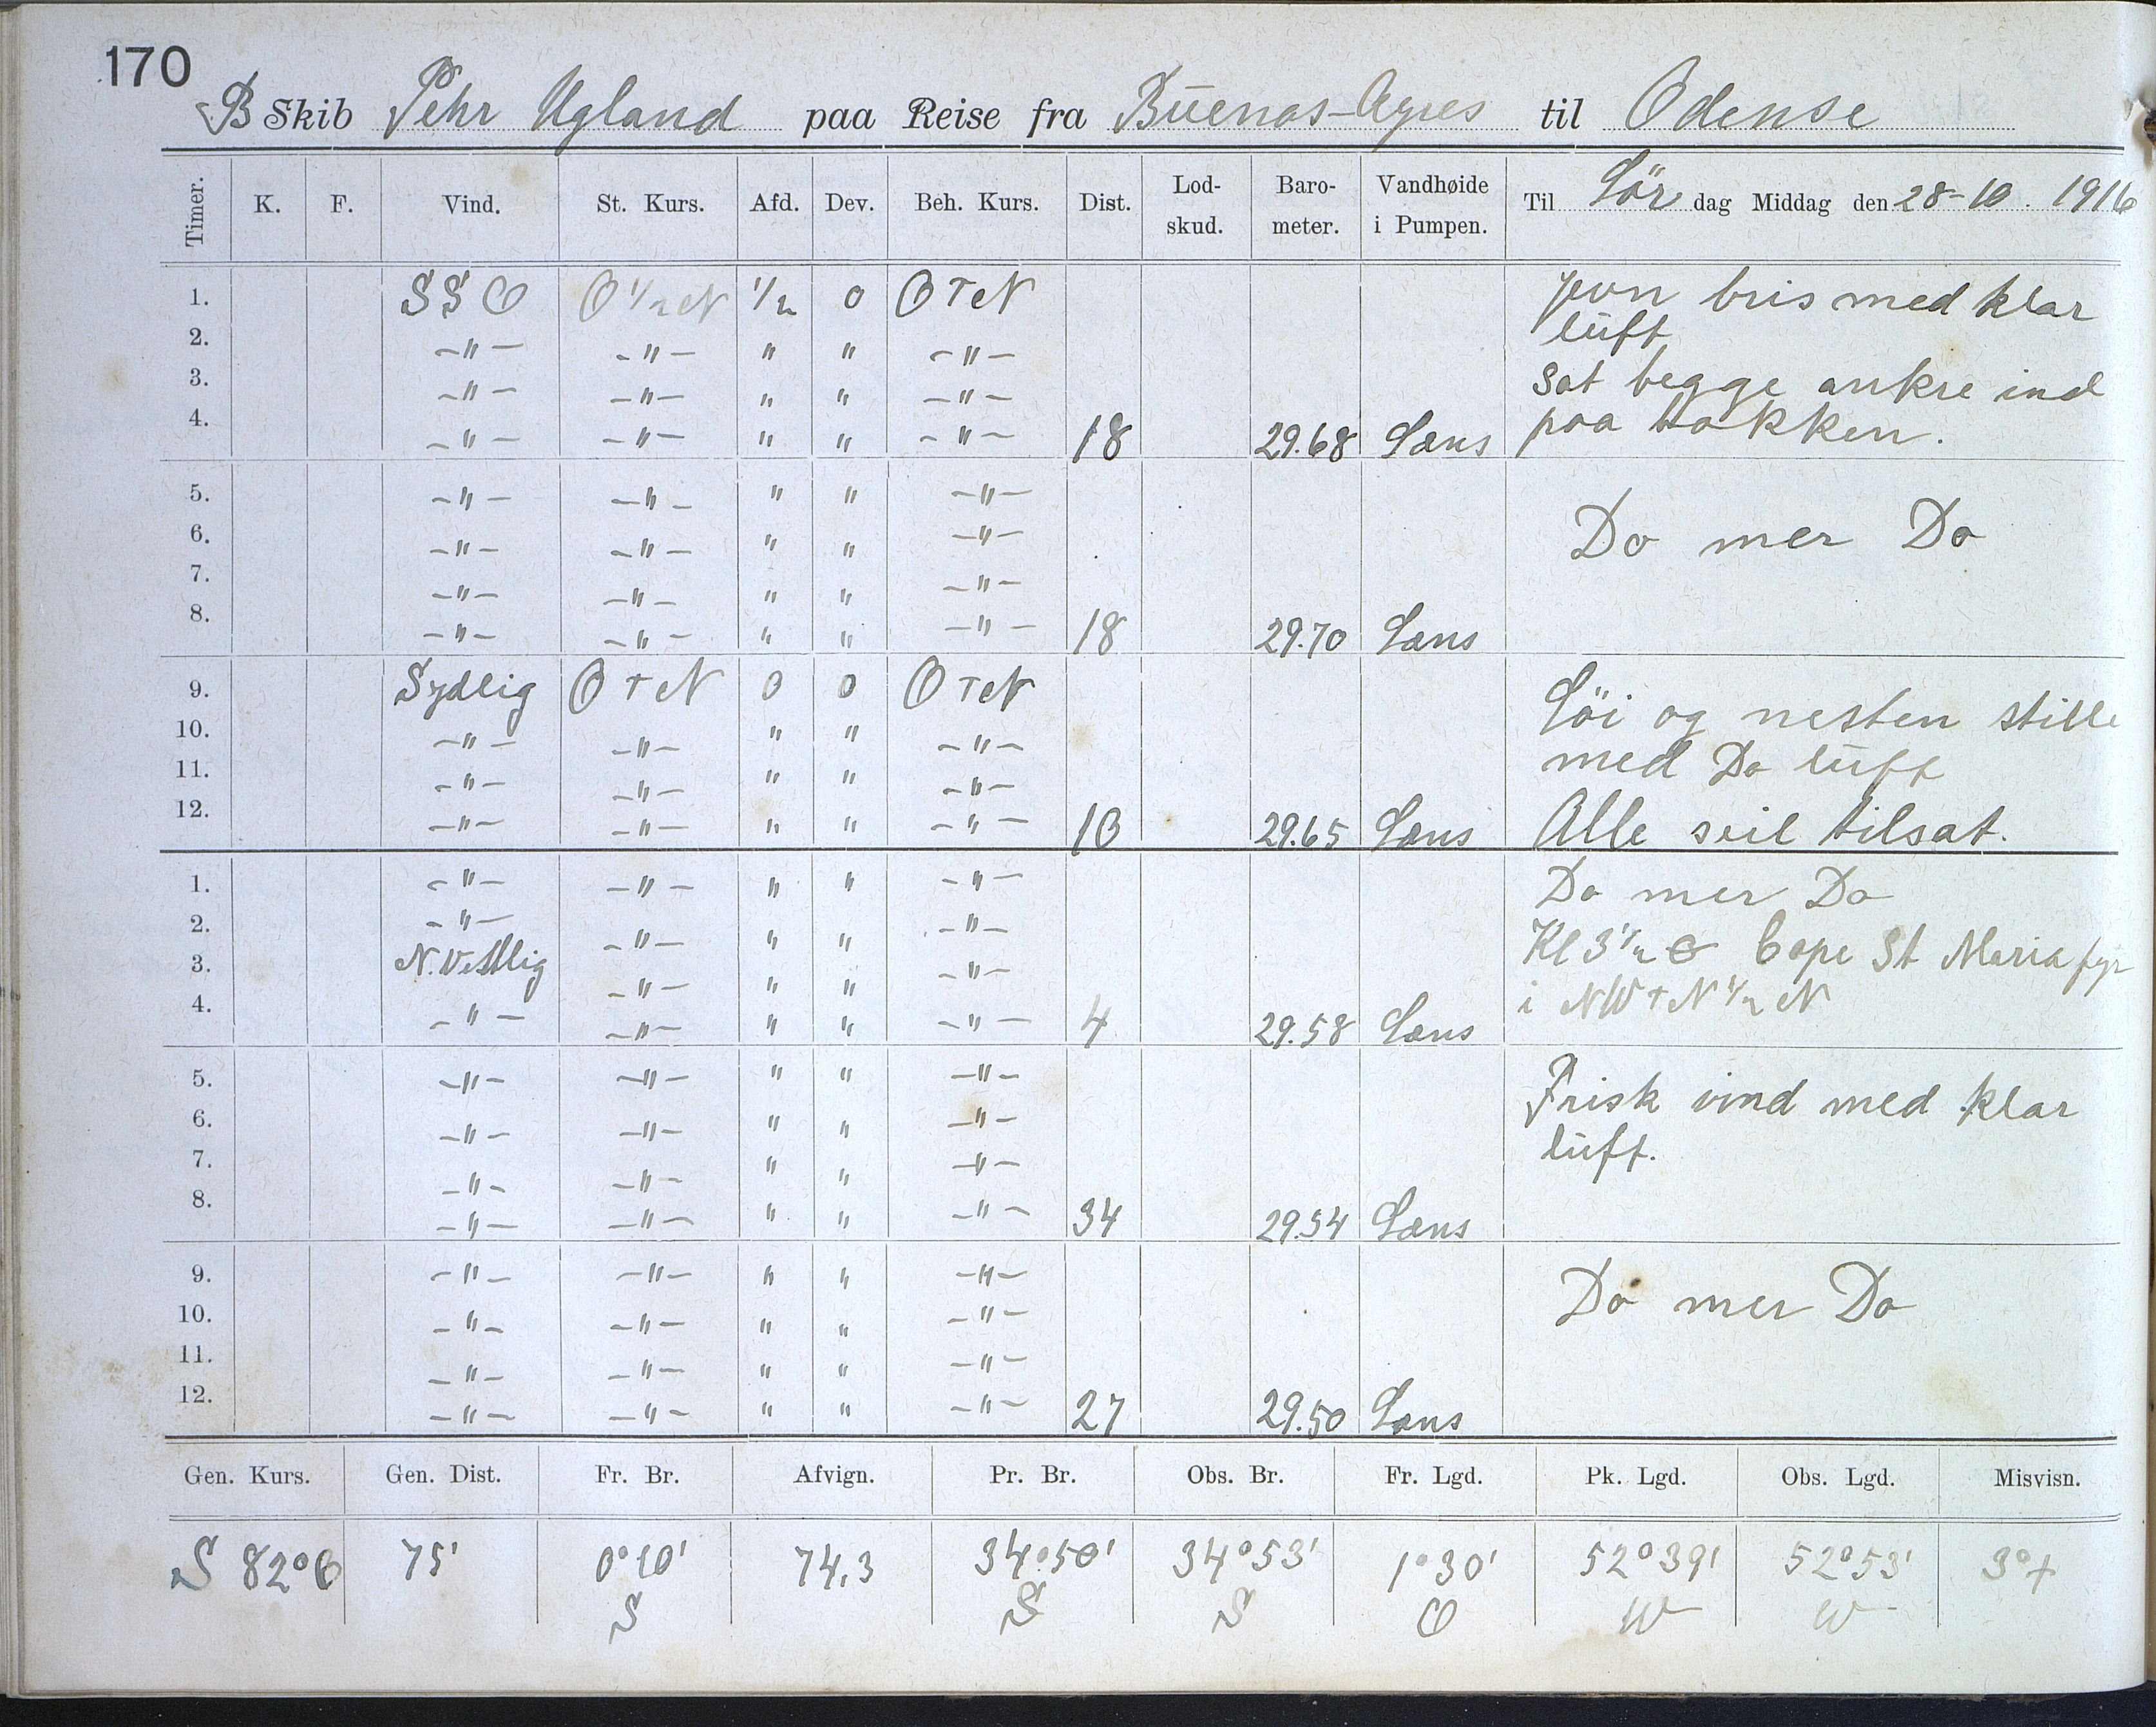 170
B Skib Pehr Ugland paa Reise fra Buenos-Ayres til Odense
Timer. K. F. Vind. St. Kurs. Afd. Dev. Beh. Kurs. Dist. Lod-skud. Baro-meter. Vandhøide i Pumpen. Til Lör dag Middag den 28-10. 1916
1. SSO O 1/2 N 1/2 0 O T N pen bris med klar
2. -"- -"- " " -"- luft
3. -"- -"- " " -"- sat begge ankre ind
4. -"- -"- " " -"- 18 29.68 Læns paa bakken.
5. -"- -"- " " -"-
6. -"- -"- " " -"- Do mer Do
7. -"- -"- " " -"-
8. -"- -"- " " -"- 18 29.70 Læns
9. Sydlig O T N 0 0 O T N Löi og nesten stille
10. -"- -"- " " -"- med Do luft
11. -"- -"- " " -"-
12. -"- -"- " " -"- 10 29.65 Læns Alle seil tilsat.
1. -"- -"- " " -"- Do mer Do
2. -"- -"- " " -"- Kl 3 1/2 Cape St Maria fyr
3. N. Vestlig -"- " " -"- i NW T N 1/2 N
4. -"- -"- " " -"- 4 29.58 Læns
5. -"- -"- " " -"- Frisk vind med klar
6. -"- -"- " " -"- luft.
7. -"- -"- " " -"-
8. -"- -"- " " -"- 34 29.54 Læns
9. -"- -"- " " -"- Do mer Do
10. -"- -"- " " -"-
11. -"- -"- " " -"-
12. -"- -"- " " -"- 27 29.50 Læns
Gen. Kurs. Gen. Dist. Fr. Br. Afvign. Pr. Br. Obs. Br. Fr. Lgd. Pk. Lgd. Obs. Lgd. Misvisn.
S 82° O 75' 0°10' 74,3 34°50' 34°53' 1°30' 52°39' 52°53' 3°+
S S S O W W